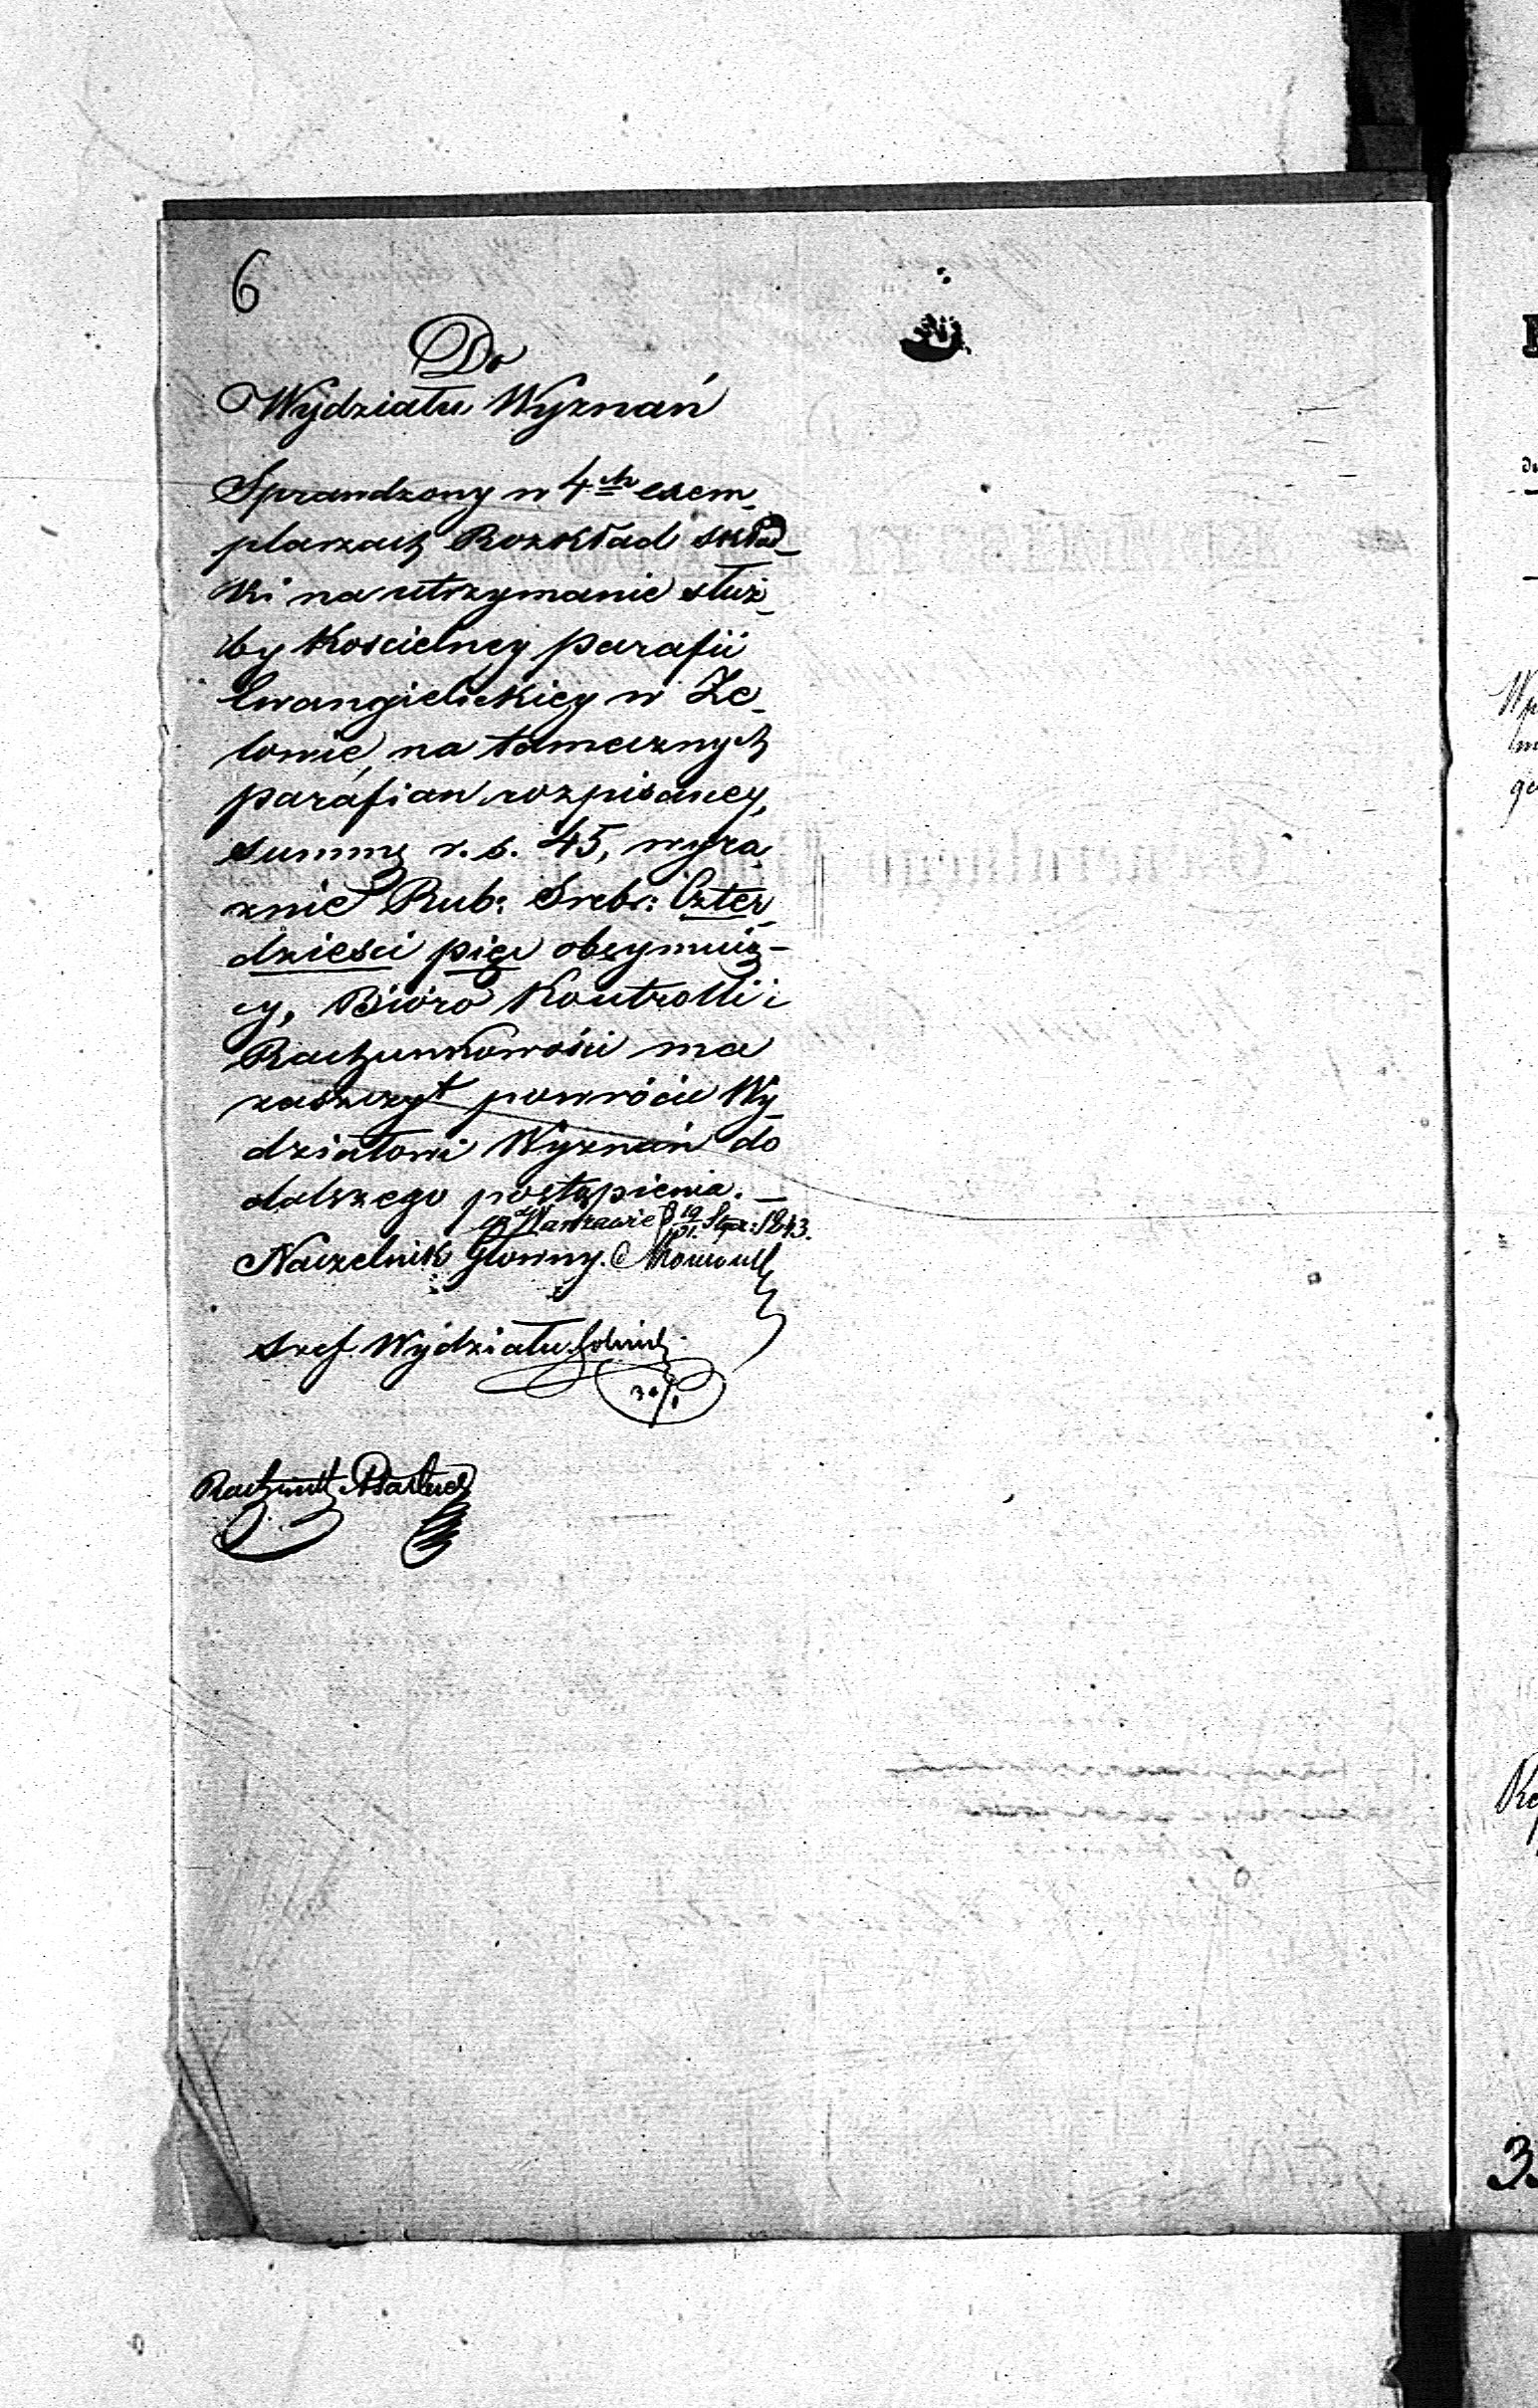 6
Do
Wydziału Wyznań
Sprawdzony w 4ch exem_
plarzach Rozkład skład_
ki na utrzymanie służ_
by Kościelney parafii
Ewangielickiey w Ze_
lowie, na tamecznych
parafian rozpisaney,
summę r. s. 45, wyra
znie Rub: Sreb: Czter_
dzieści pięć obeymuią-
cy, Bióro Kontrolli i
Rachunkowości ma
zaszczyt powrócić Wy_
działowi Wyznań do
dalszego postąpienia. _
w Warszawie d 19/31. 1843.
Naczelnik Głowny.
Szef Wydziału